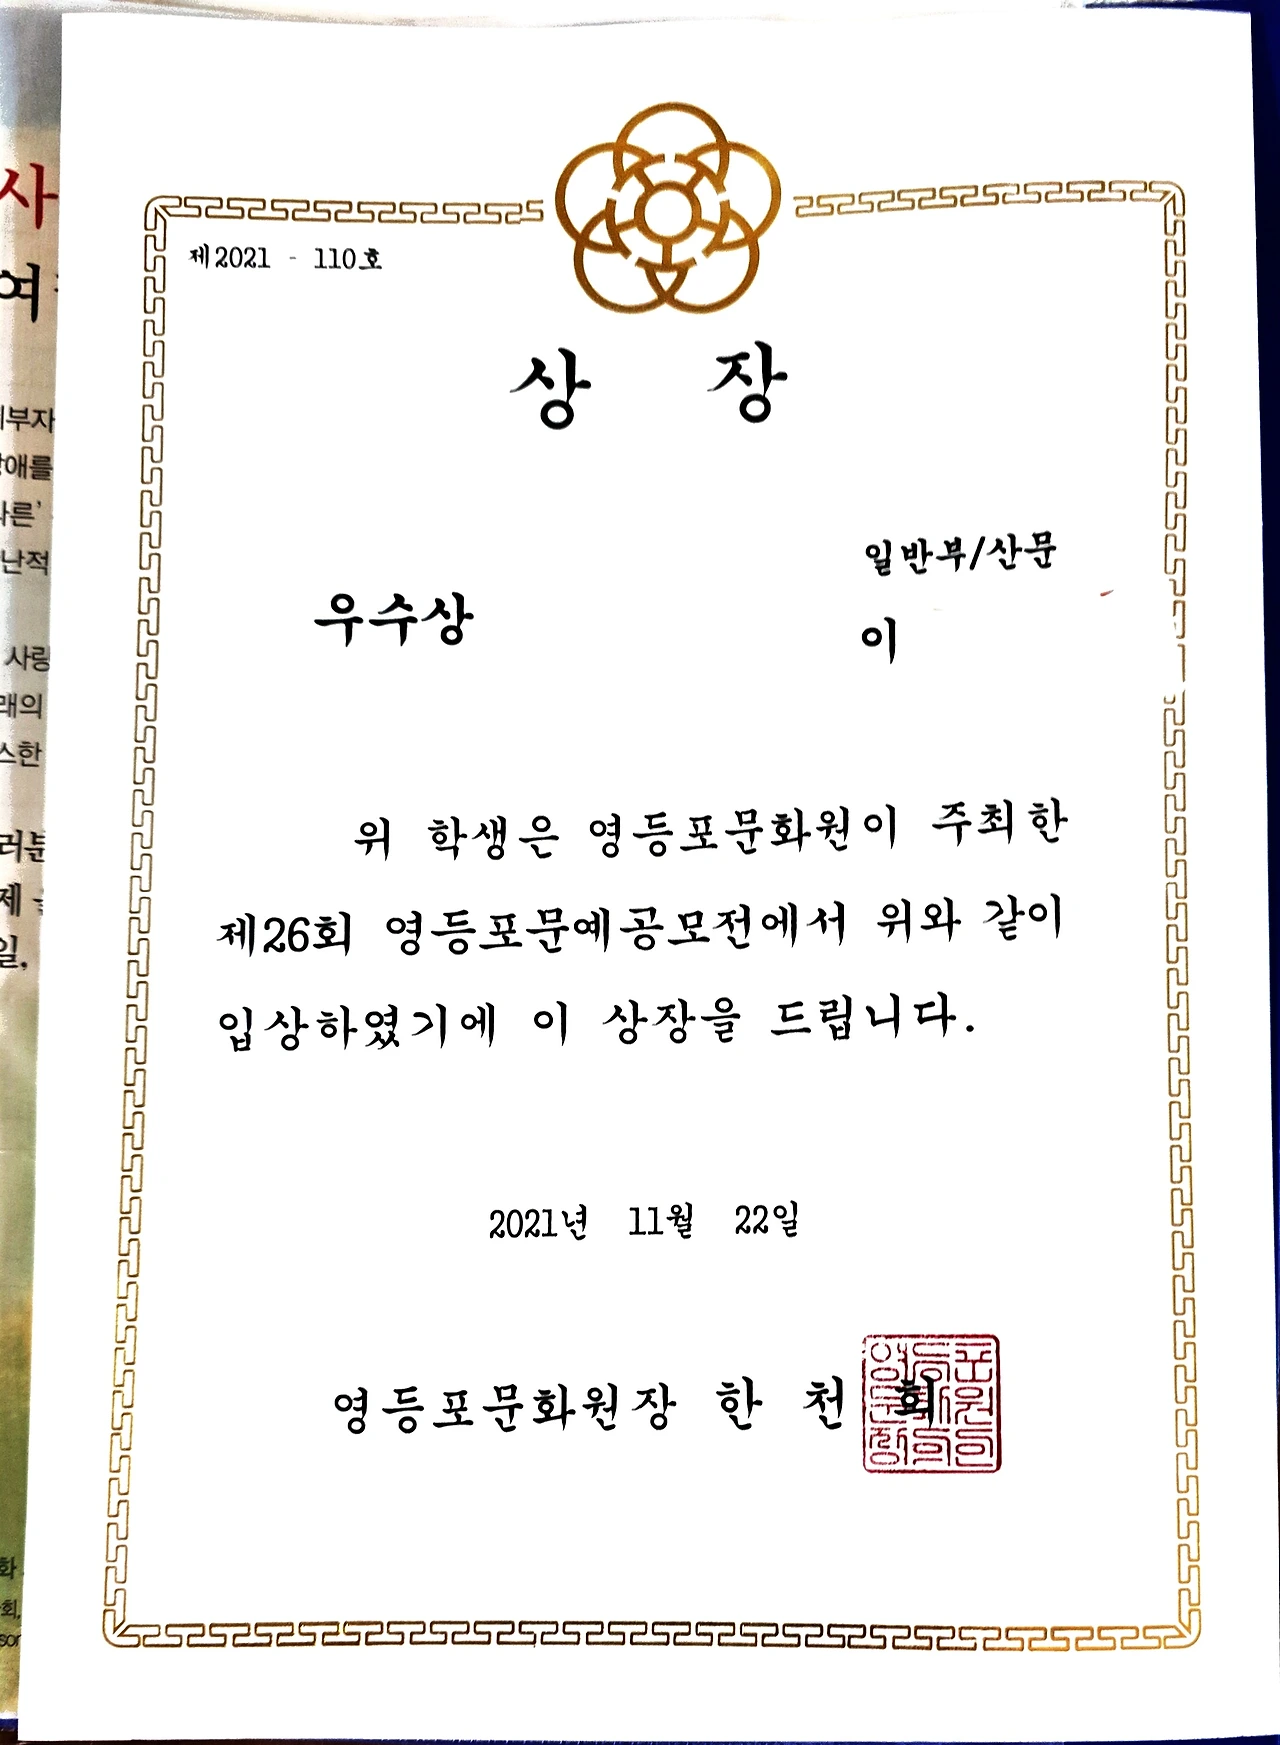 제2021 - 110호
상 장
일반부/산문
우수상
이
위 학생은 영등포문화원이 주최한
제26회 영등포문예공모전에서 위와 같이
입상하였기에 이 상장을 드립니다.
2021년 11월 22일
영등포문화원장 한 천 희
사
여
부자
애를
른'
난적
사랑
래의
스한
러분
제
일,
화
회,